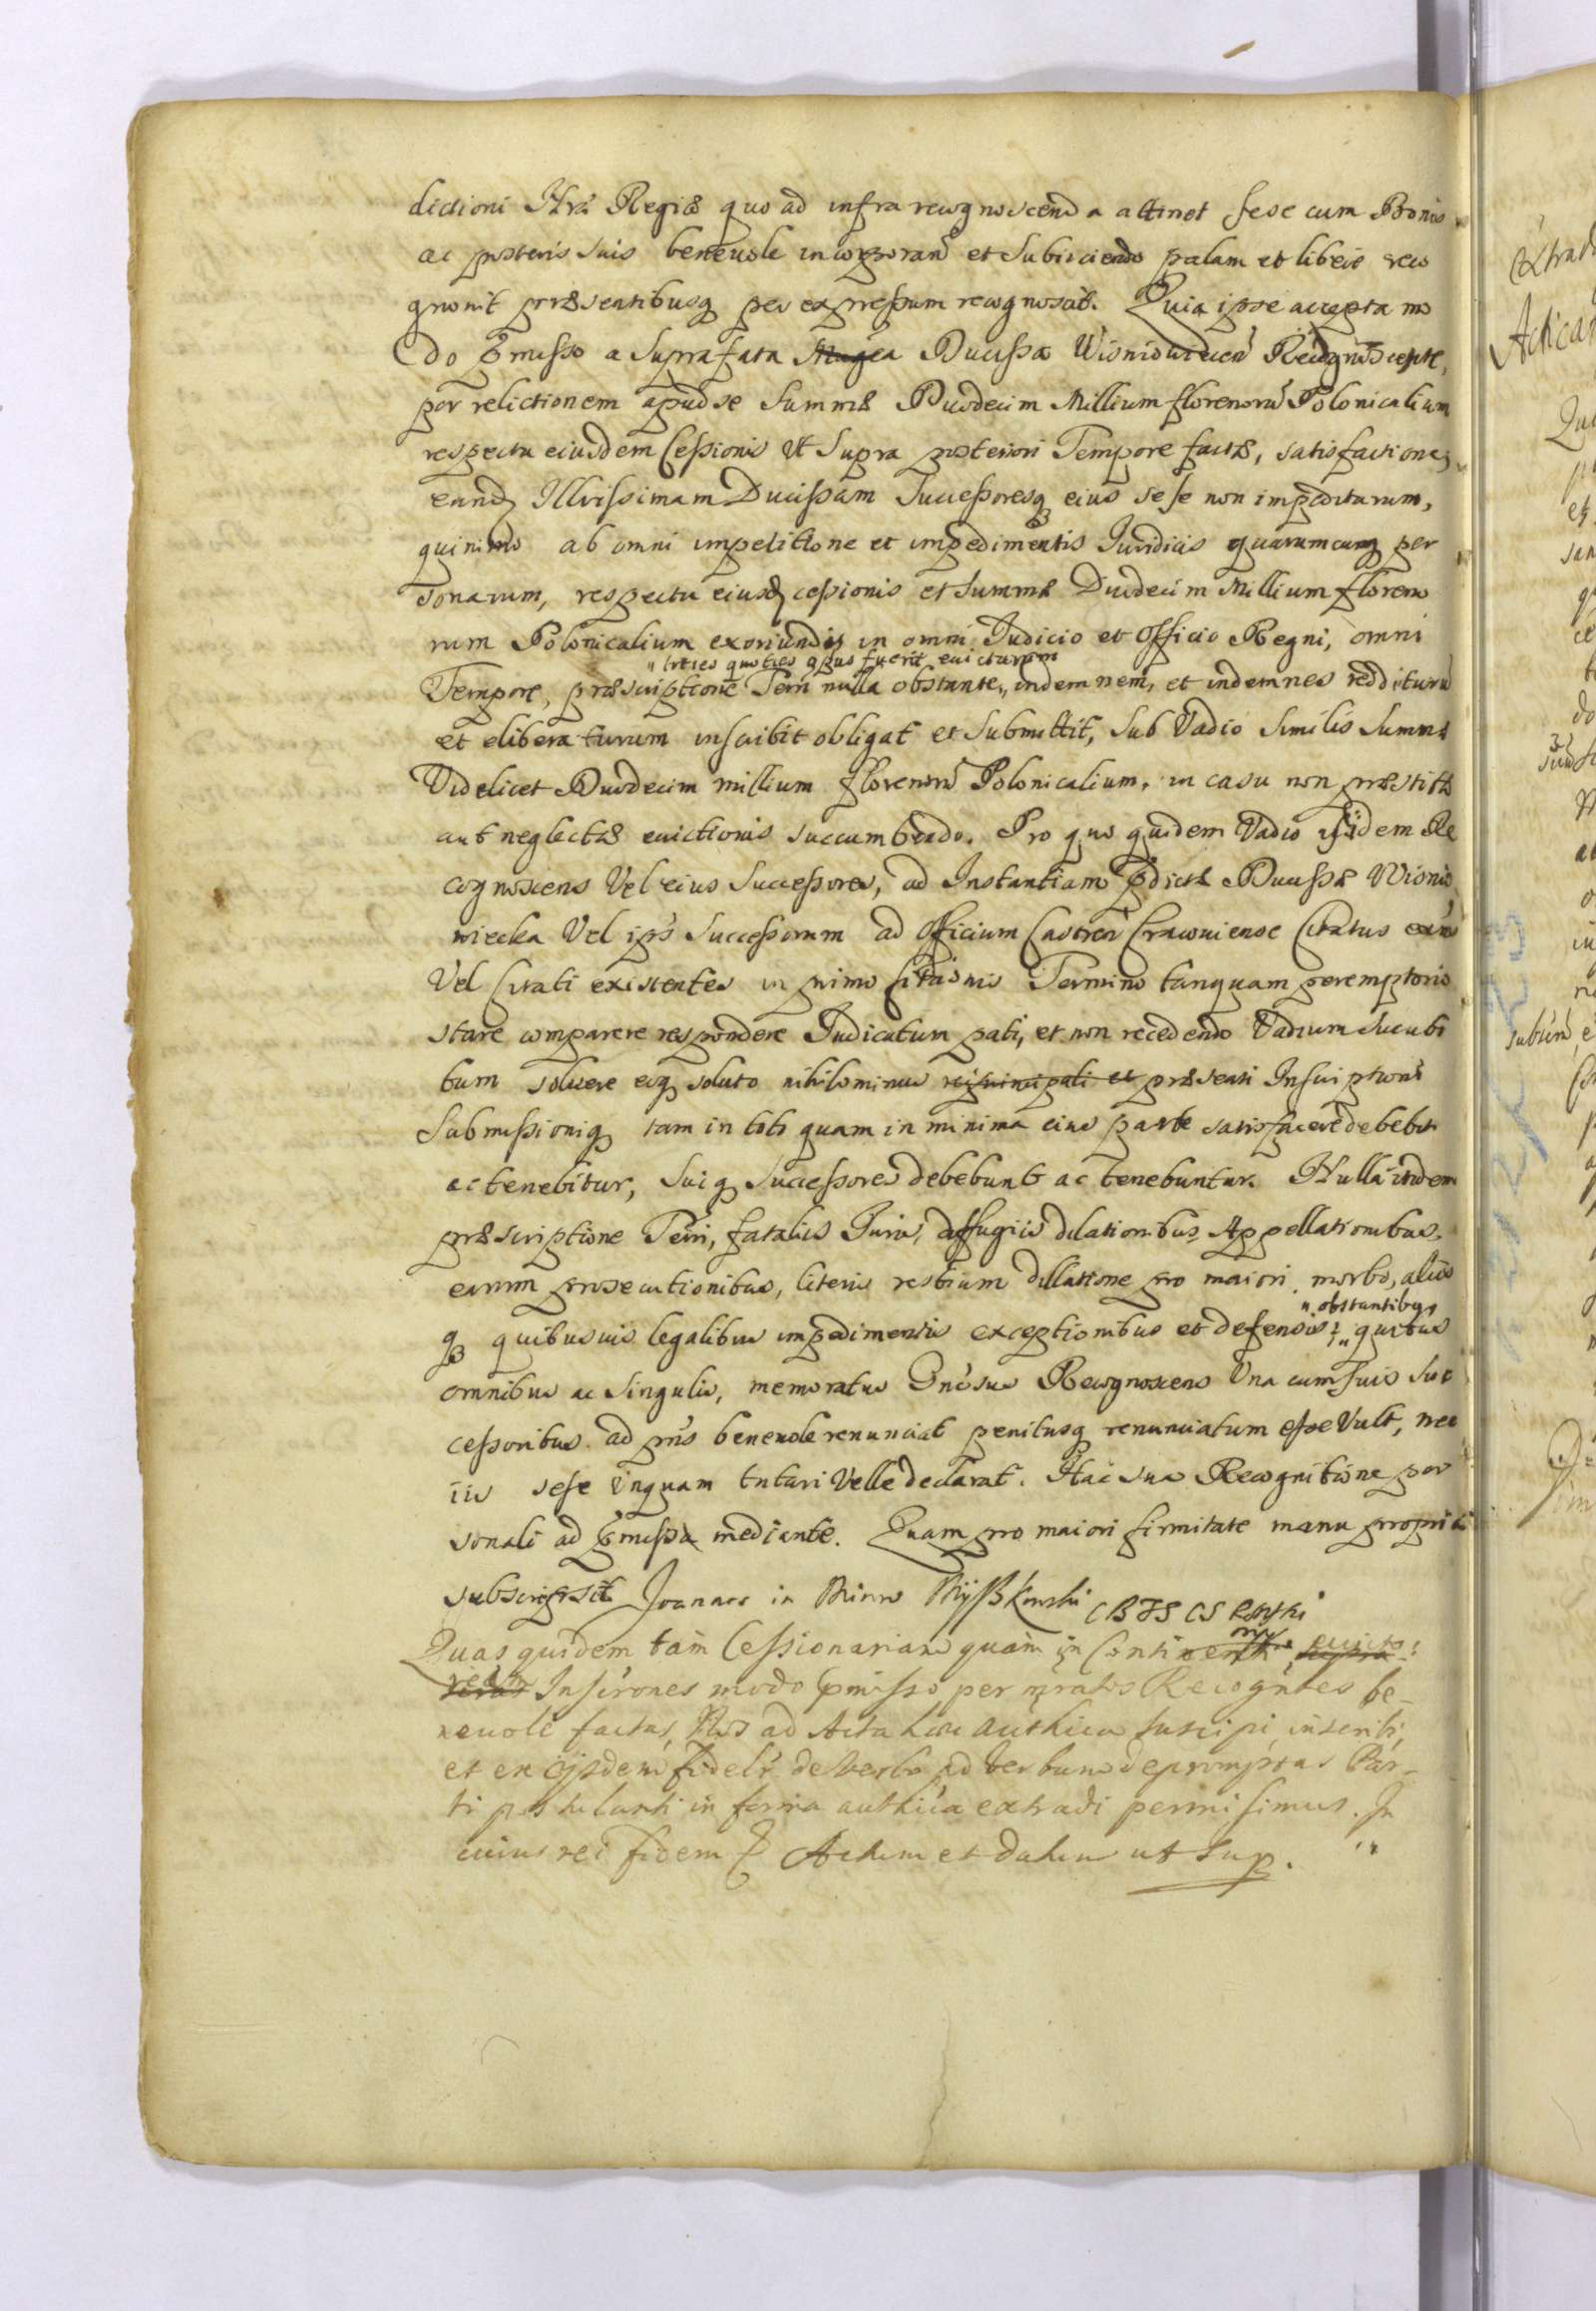 dictioni Nrã Regiæ quo ad infra recognoscenda attinet sese cum Bonis
ac posteris suis beneuole incorporan̄ et Subiiciendo palam et libere reco
gnouit præsentibusq per expressum recognoscit. Quia ipse accepta mo
do pmisso a Suprafata Magca Ducissa Wisniouiecen̄ Recognoscente,
per relictionem apud se Summæ Duodecim Millium florenorũ Polonicalium
respectu eiusdem Cessionis Vt Supra posteriori Tempore factæ, satisfactione,
eand Illrissimam Ducissam Successoresq eius sese non impeditarum,
quinimo ab omni impetitione et impedimentis Iuridicis quarumcunq per
sonarum, respectu eiusd cessionis et Summæ Duodecim Millium floreno
rum Polonicalium exoriundis in omni Iudicio et Officio Regni, omni
" toties quoties opus fuerit euicturum
Tempore, præscriptione Terri nulla obstante, " indemnem, et indemnes redditurũ
et eliberaturum inscribit obligat et Submittit, Sub Vadio Similis Summæ
Videlicet Duodecim millium florenorũ Polonicalium, in casu non præstitæ
aut neglectæ euictionis succumbendo. Pro quo quidem Vadio ijsdem Re
cognoscens Vel eius Successores, ad Instantiam pdictæ Ducissæ Wisnio
wiecka Vel ips̄ Successorum ad Officium Castren̄ Cracouiense Citatus
Vel Citati existentes in primo Citaõnis Termino tanquam peremptorio
stare comparere respondere Iudicatum pati, et non recedendo Vadium Sucubi
tum soluere eoq soluto nihilominus rei principali et præsenti Inscriptioni
Submissioniq tam in toto quam in minima eius parte satisfacere debebit
ac tenebitur, Suiq Successores debebunt ac tenebuntur. Nulla itidem
præscriptione Terri, fatalis Iuris, diffugiis dilationibus Appellationibus
earum prosecutionibus, literis restium dillatione pro maiori, morbo, aliis
" obstantibus
q quibusuis legalibus impedimentis exceptionibus et defensis: " quibus
omnibus ac Singulis, memoratus Gnẽsus Recognoscens Vna cum suis Suc
cessoribus ad pns beneuole renunciat penitusq renunciatum esse Vult, nec
iis sese vnquam tutari Velle declarat. Hac sua Recognitione per
sonali ad pmissa mediante. Quam pro maiori firmitate manu propria
subscripsit Joannes in Mirow Myszkowski
Quas quidem tam Cessionariam quam in Conti euicto:
riam Inscrõnes modo pmisso per mratos Recogntes be-
neuole factas, Nos ad Acta haec authica suscipi, inscribi,
et ex ijsdem fideli de Verbo ad Verbum depromptas Par-
ti postulanti in forma authica extradi permisimus. In
cuius rei fidem & Actum et datum ut Sup. "